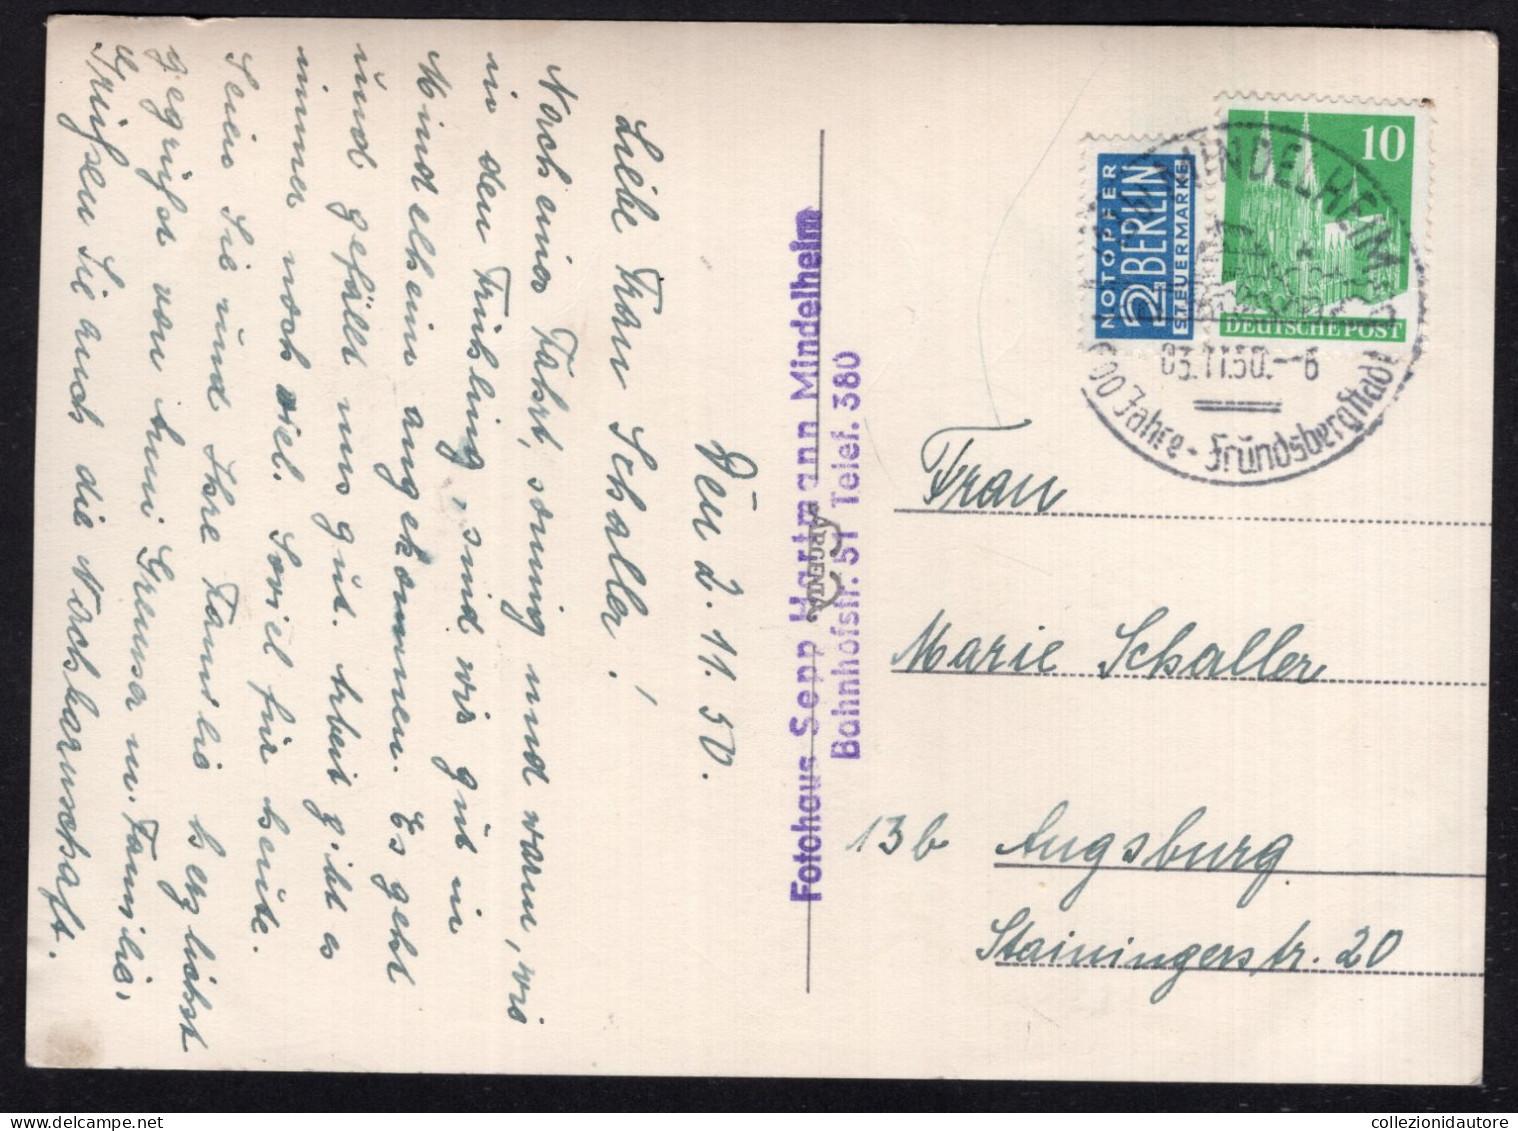 Den 2. 11. 50.
Liebe Frau Schaller!
Nach einer Fahrt, sonnig und warm, wie
in den Frühling, sind wir gut in
Mindelheim angekommen. Es geht
und gefällt uns gut. Arbeit gibt es
immer noch viel. Soviel für heute.
Seien Sie und Ihre Familie herzlichst
gegrüßt von Anni Greuser u. Familie.
Grüßen Sie auch die Nachbarnschaft.
Fotohaus Sepp Hartmann Mindelheim
Bahnhofstr. 51 Telef. 380
NOTOPFER
2 BERLIN
STEUERMARKE
10
DEUTSCHE POST
MINDELHEIM
03.11.50.--6
900 Jahre - Frundsbergstadt
Frau
Marie Schaller
13b Augsburg
Stainingerstr. 20
collezionidautore.com